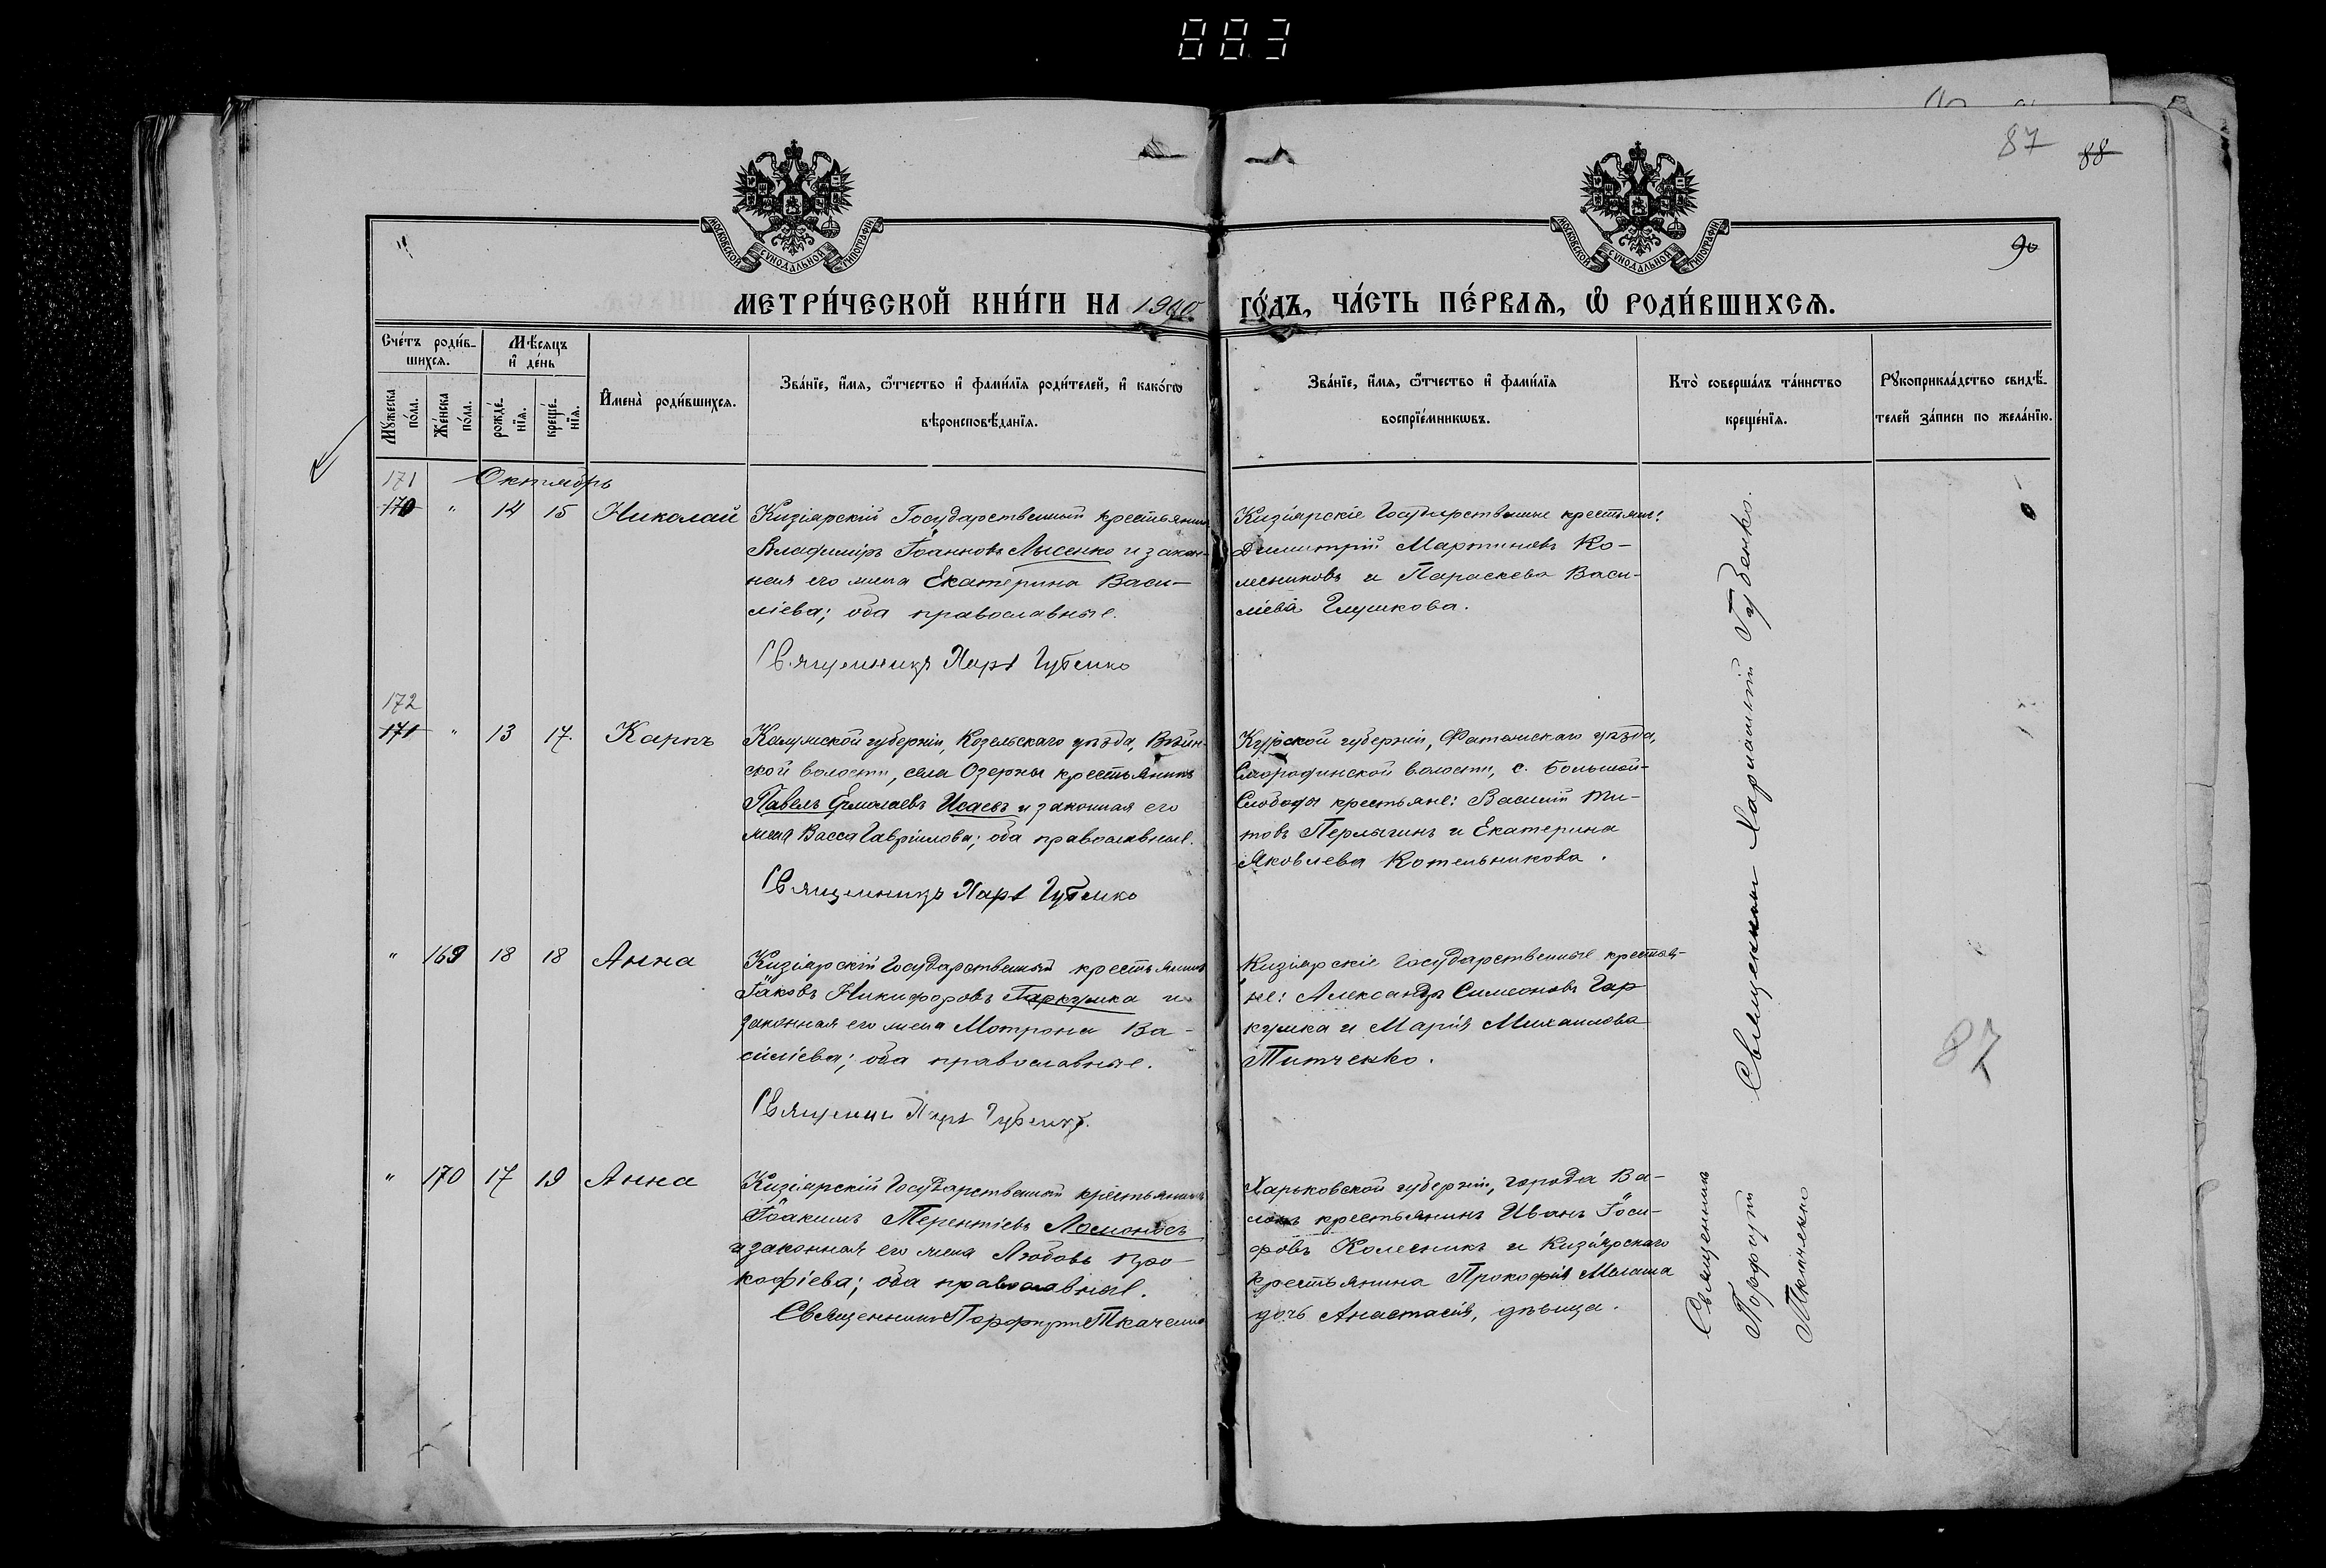 883
87 88
90
МОСКОВСКОЙ СѴНОДАЛЬНОЙ ТИПОГРАФІИ
МОСКОВСКОЙ СѴНОДАЛЬНОЙ ТИПОГРАФІИ
МЕТРИ́ЧЕСКОЙ КНИ́ГИ НА 1900 ГО́ДЪ, ЧА́СТЬ ПЕ́РВАѦ, Ѡ҆ РОДИ́ВШИХСѦ.
Сче́тъ роди́вшихсѧ.
Мꙋ́жеска по́ла.
Же́нска по́ла.
Мѣ́сѧцъ и҆ де́нь
рожде́нїѧ.
креще́нїѧ.
И҆мена̀ роди́вшихсѧ.
Зва́нїе, и҆́мѧ, ѻ҆́тчество и҆ фами́лїѧ роди́телей, и҆ како́гѡ
вѣроисповѣ́данїѧ.
Зва́нїе, и҆́мѧ, ѻ҆́тчество и҆ фами́лїѧ
воспрїе́мникѡвъ.
Кто̀ соверша́лъ та́инство
креще́нїѧ.
Рꙋкоприкла́дство свидѣ́телей за́писи по жела́нїю.
171 Октябрь
170 " 14 15 Николай
Кизіярскій Государственный крестьянинъ
Владиміръ Іоанновъ Лысенко и закон-
ная его жена Екатерина Васи-
ліева; оба православные.
Священникъ Харл Губенко
Кизіярскіе Государственные крестьяне:
Димитрій Мартиновъ Ко-
лесниковъ и Параскева Васи-
ліева Глушкова.
172
171 " 13 17. Карпъ
Калужской губерніи, Козельскаго уѣзда,
ской волости, села Озерны крестьянинъ
Павелъ Ермолаевъ Исаевъ и законная его
жена Васса Гавріилова; оба православные.
Священникъ Харл Губенко
Курской губерніи, Фатежскаго уѣзда,
Смородинской волости, с. Большой-
Слободы крестьяне: Василій Ти-
товъ Перлыгинъ и Екатерина
Яковлева Котельникова.
Священникъ Харлампій Губенко.
" 169 18 18 Анна
Кизіярскій Государственный крестьянинъ
Іаковъ Никифоровъ Гаркушка и
законная его жена Мотрона Ва-
силіева; оба православные.
Священни Харл Губенко.
Кизіярскіе Государственные крестья-
не: Александръ Симеоновъ Гар
кушка и Марія Михаилова
Титченко.
87
" 170 17 19 Анна
Кизіярскій Государственный крестьянинъ
Іоакимъ Терентіевъ Ломоносъ
и законная его жена Любовь Про-
кофіева; оба православные.
Священникъ Порфирій Ткаченко
Харьковской губерніи, города Ва-
локъ крестьянинъ Иванъ Іоси-
фовъ Колесникъ и Кизіярскаго
крестьянина Прокофія
дочь Анастасія, дѣвица.
Священникъ
Порфирій
Ткаченко